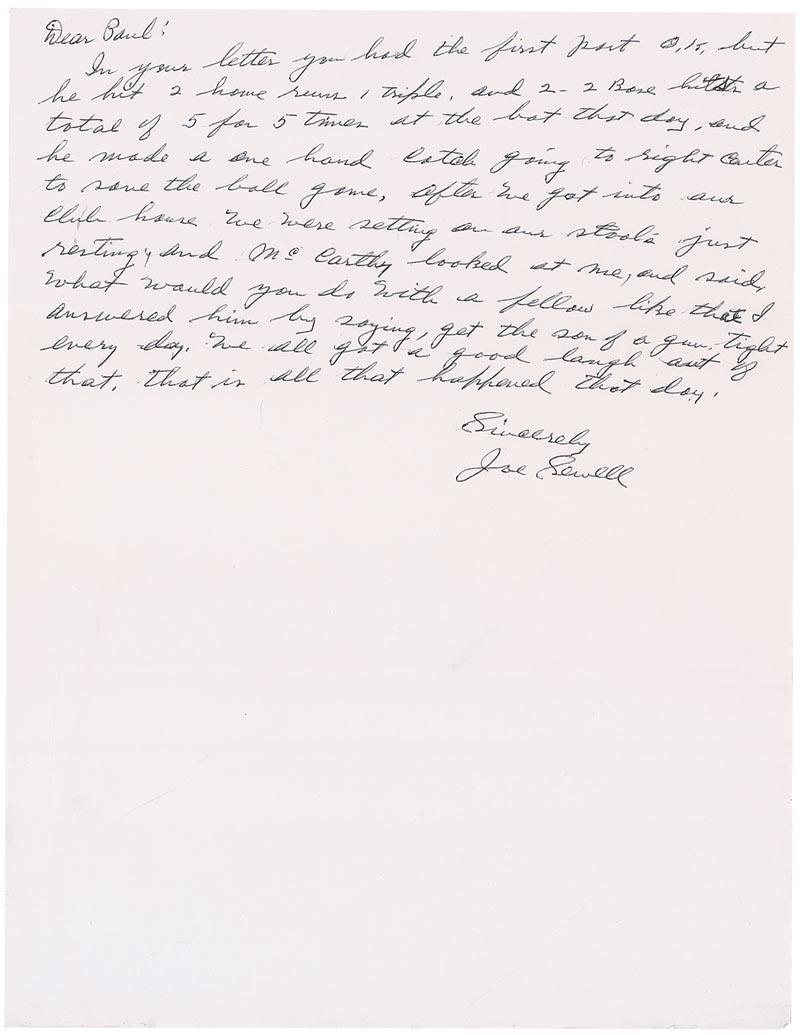 Dear Paul:
In your letter you had the first part O.K, but
he hit 2 home runs 1 triple, and 2-2 Base hits a
total of 5 for 5 times at the bat that day, and
he made a one hand catch going to right center
to save the ball game, after we got into our
club house we were setting on our stools just
resting, and Mc Carthy looked at me, and said,
what would you do with a fellow like that I
answered him by saying, get the son of a gun tight
every day. We all got a good laugh out of
that. That is all that happened that day.
Sincerely
Joe Sewell